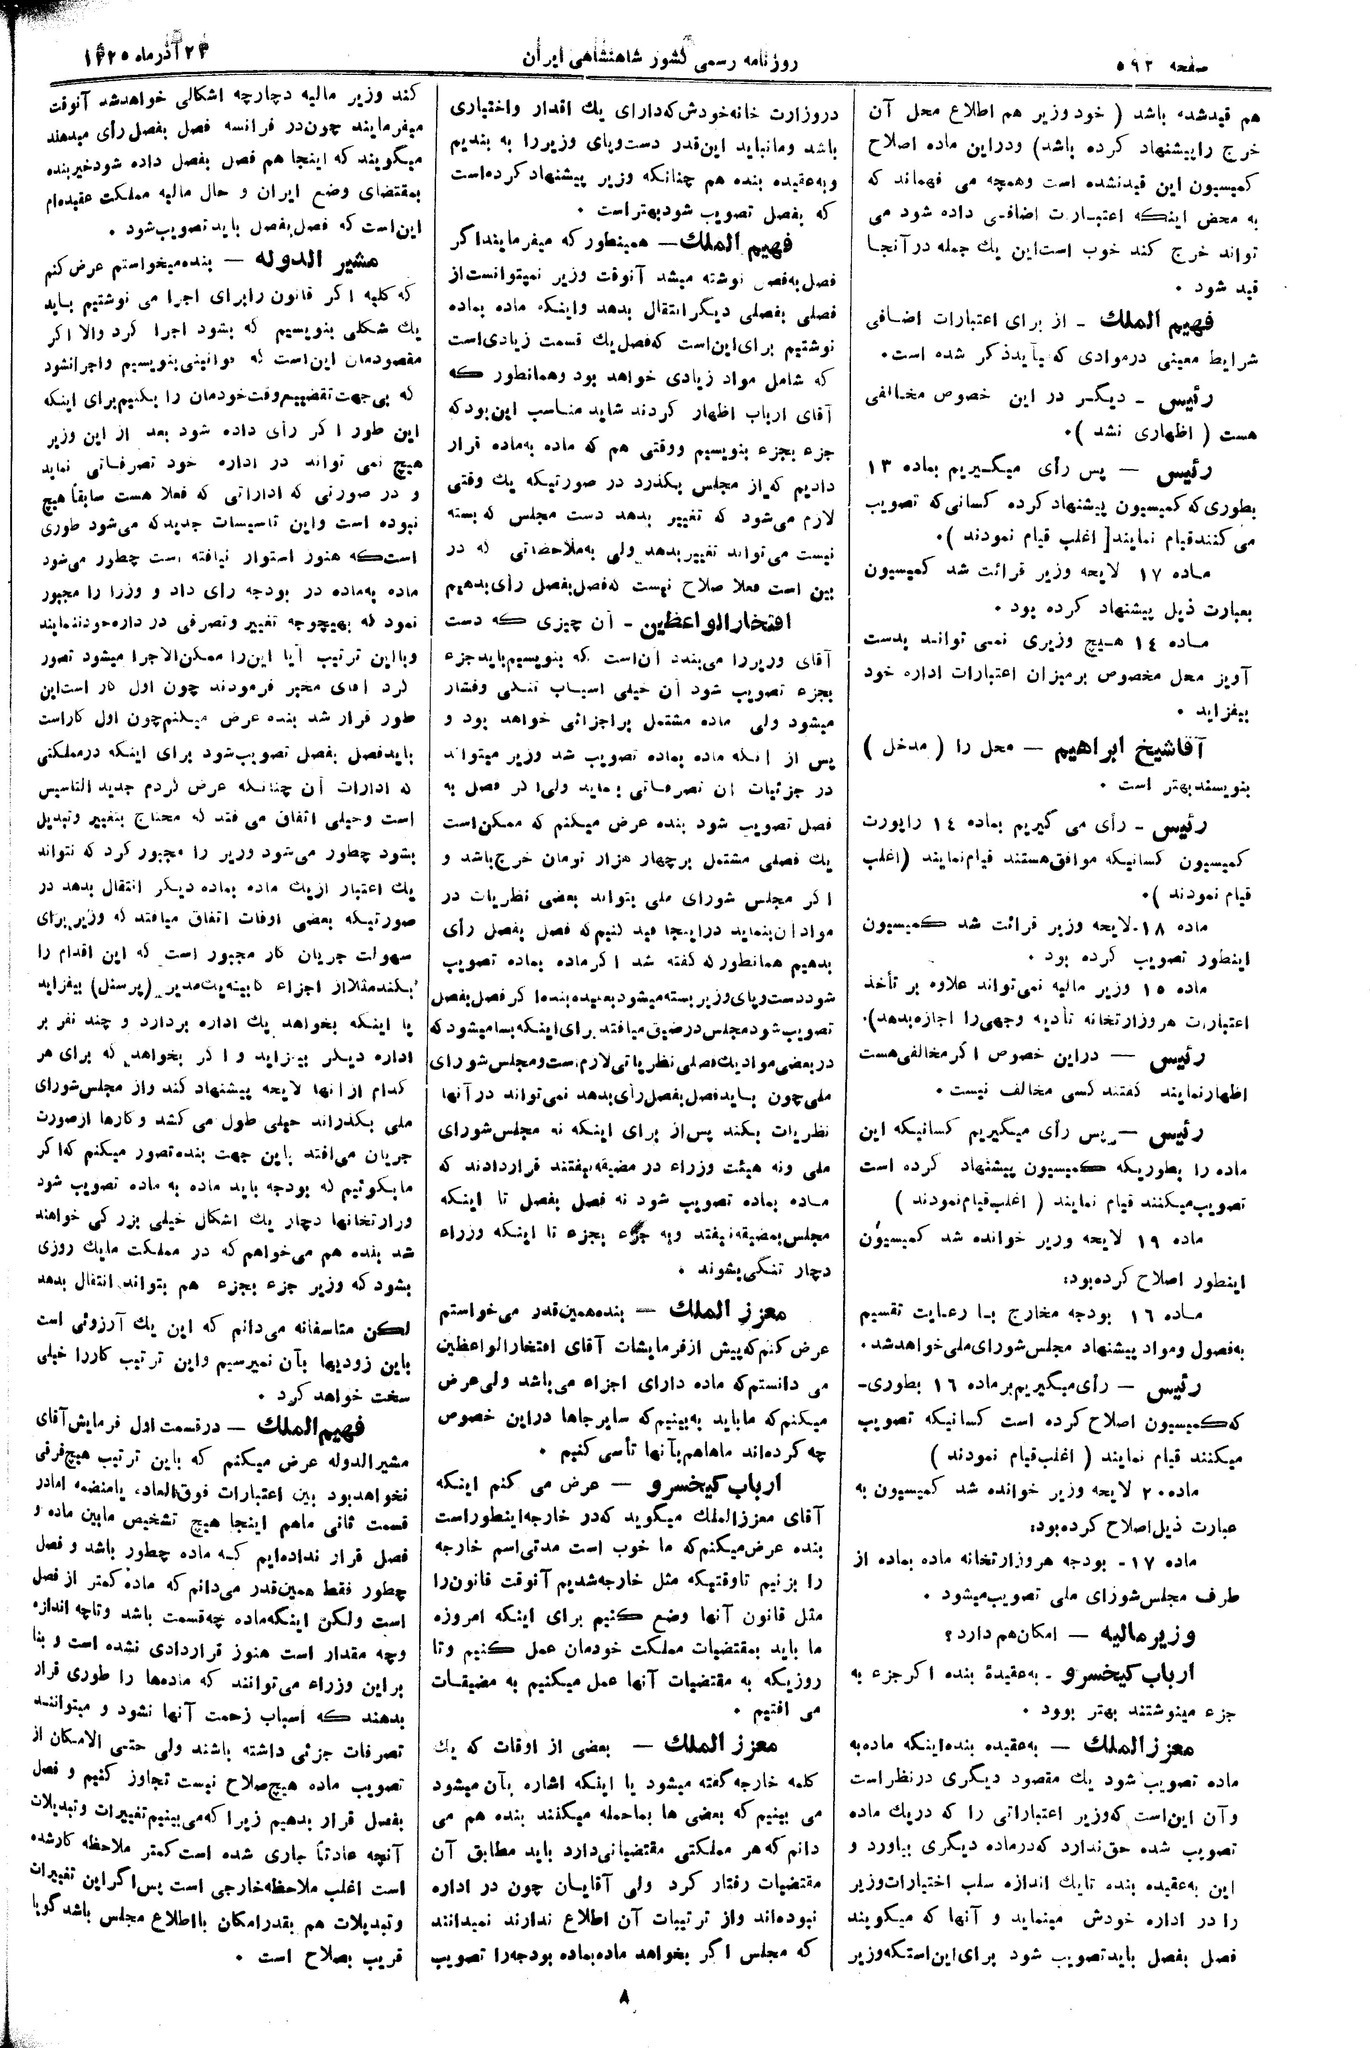 صفحه ۵۹۲
روزنامه رسمی کشور شاهنشاهی ایران
۲۳ آذر ماه ۱۳۲۵
هم قید شده باشد ( خود وزیر هم اطلاع محل آن
خرج را پیشنهاد کرده باشد) و در این ماده اصلاح
کمیسیون این قید نشده است و همچه می فهماند که
به محض اینکه اعتبارت اضافی داده شود می
تواند خرج کند خوب است این یك جمله در آنجا
قید شود .
فهیم الملك - از برای اعتبارات اضافی
شرایط معینی در موادی که باید ذکر شده است.
رئیس - دیگر در این خصوص مخالفی
هست ( اظهاری نشد ).
رئیس — پس رأی میگیریم بماده ۱۳
بطوری که کمیسیون پیشنهاد کرده کسانی که تصویب
می کنند قیام نمایند[ اغلب قیام نمودند ).
ماده ۱۷ لایحه وزیر قرائت شد کمیسیون
بعبارت ذیل پیشنهاد کرده بود .
ماده ۱۴ هیچ وزیری نمی تواند بدست
آویز محل مخصوص بر میزان اعتبارات اداره خود
بیفزاید .
آقا شیخ ابراهیم — محل را ( مدخل )
بنویسند بهتر است .
رئیس - رأی می گیریم بماده ۱۴ راپورت
کمیسیون کسانیکه موافق هستند قیام نمایند (اغلب
قیام نمودند ).
ماده ۱۸- لایحه وزیر قرائت شد کمیسیون
اینطور تصویب کرده بود .
ماده ۱۵ وزیر مالیه نمی تواند علاوه بر تأخذ
اعتبارت هر وزارتخانه تأدیه وجهی را اجازه بدهد).
رئیس — در این خصوص اگر مخالفی هست
اظهار نمایند گفتند کسی مخالف نیست .
رئیس — پس رأی میگیریم کسانیکه این
ماده را بطوریکه کمیسیون پیشنهاد کرده است
تصویب میکنند قیام نمایند ( اغلب قیام نمودند )
ماده ۱۹ لایحه وزیر خوانده شد کمیسیون
اینطور اصلاح کرده بود:
ماده ۱۶ بودجه مخارج با رعایت تقسیم
به فصول و مواد پیشنهاد مجلس شورای ملی خواهد شد.
رئیس — رأی میگیریم بر ماده ۱۶ بطوری-
که کمیسیون اصلاح کرده است کسانیکه تصویب
میکنند قیام نمایند ( اغلب قیام نمودند )
ماده ۲۰ لایحه وزیر خوانده شد کمیسیون به
عبارت ذیل اصلاح کرده بود:
ماده ۱۷- بودجه هر وزارتخانه ماده بماده از
طرف مجلس شورای ملی تصویب میشود .
وزیر مالیه — امکان هم دارد ؟
ارباب کیخسرو - به عقیدهٔ بنده اگر جزء به
جزء مینوشتند بهتر بوود .
معزز الملك — به عقیده بنده اینکه ماده به
ماده تصویب شود یك مقصود دیگری در نظر است
و آن این است که وزیر اعتباراتی را که در یك ماده
تصویب شده حق ندارد که در ماده دیگری بیاورد و
این به عقیده بنده تا یك اندازه سلب اختیارات وزیر
را در اداره خودش مینماید و آنها که میگویند
فصل بفصل باید تصویب شود برای این است که وزیر
در وزارت خانه خودش که دارای یك اقدار و اختیاری
باشد و ما نباید این قدر دست و پای وزیر را به بندیم
و به عقیده بنده هم چنانکه وزیر پیشنهاد کرده است
که بفصل تصویب شود بهتر است .
فهیم الملك — همینطور که میفرمایند اگر
فصل به فصل نوشته میشد آنوقت وزیر نمیتوانست از
فصلی بفصلی دیگر انتقال بدهد و اینکه ماده بماده
نوشتیم برای این است که فصل یك قسمت زیادی است
که شامل مواد زیادی خواهد بود و همانطور که
آقای ارباب اظهار کردند شاید مناسب این بود که
جزء بجزء بنویسیم و وقتی هم که ماده به ماده قرار
دادیم که از مجلس بگذرد در صورتیکه یك وقتی
لازم می شود که تغییر بدهد دست مجلس که بسته
نیست می تواند تغییر بدهد ولی به ملاحضاتی که در
بین است فعلا صلاح نیست که فصل بفصل رأی بدهیم
افتخار الواعظین - آن چیزی که دست
آقای وزیر را می بندد آن است که بنویسیم باید جزء
بجزء تصویب شود آن خیلی اسباب تنگی و فشار
میشود ولی ماده مشتمل بر اجزائی خواهد بود و
پس از آنکه ماده بماده تصویب شد وزیر میتواند
در جزئیات آن تصرفاتی بنماید ولی اگر فصل به
فصل تصویب شود بنده عرض میکنم که ممکن است
یك فصلی مشتمل بر چهار هزار تومان خرج باشد و
اگر مجلس شورای ملی بتواند بعضی نظریات در
مواد آن بنماید در اینجا قید کنیم که فصل بفصل رأی
بدهیم همانطور که گفته شد اگر ماده بماده تصویب
شود دست و پای وزیر بسته میشود بعقیده بنده اگر فصل بفصل
تصویب شود مجلس در ضیق میافتد برای اینکه بسا میشود که
در بعضی مواد یك فصلی نظریاتی لازم است و مجلس شورای
ملی چون باید فصل بفصل رأی بدهد نمی تواند در آنها
نظریات بکند پس از برای اینکه نه مجلس شورای
ملی و نه هیئت وزراء در مضیقه بیفتند قرار دادند که
ماده بماده تصویب شود نه فصل بفصل تا اینکه
مجلس بمضیقه نیفتد و به جزء بجزء تا اینکه وزراء
دچار تنگی بشوند .
معزز الملك — بنده همین قدر می خواستم
عرض کنم که پیش از فرمایشات آقای افتخار الواعظین
می دانستم که ماده دارای اجزاء می باشد ولی عرض
میکنم که ما باید به بینیم که سایر جاها در این خصوص
چه کرده اند ما هم بآنها تأسی کنیم .
ارباب کیخسرو — عرض می کنم اینکه
آقای معزز الملك میگوید که در خارجه اینطور است
بنده عرض میکنم که ما خوب است مدتی اسم خارجه
را بزنیم تا وقتیکه مثل خارجه شدیم آنوقت قانون را
مثل قانون آنها وضع کنیم برای اینکه امروزه
ما باید بمقتضیات مملکت خودمان عمل کنیم و تا
روزیکه به مقتضیات آنها عمل میکنیم به مضیقات
می افتیم .
معزز الملك — بعضی از اوقات که یك
کلمه خارجه گفته میشود یا اینکه اشاره بآن میشود
می بینیم که بعضی ها بما حمله میکنند بنده هم می
دانم که هر مملکتی مقتضیاتی دارد باید مطابق آن
مقتضیات رفتار کرد ولی آقایان چون در اداره
نبوده اند و از ترتیبات آن اطلاع ندارند نمیدانند
که مجلس اگر بخواهد ماده بماده بودجه را تصویب
کند وزیر مالیه دچار چه اشکالی خواهد شد آنوقت
میفرمایند چون در فرانسه فصل بفصل رأی میدهند
میگویند که اینجا هم فصل بفصل داده شود خیر بنده
بمقتضای وضع ایران و حال مالیه مملکت عقیده ام
این است که فصل بفصل باید تصویب شود .
مشیر الدوله — بنده میخواستم عرض کنم
که کلیه اگر قانون را برای اجرا می نوشتیم باید
یك شکلی بنویسیم که بشود اجرا کرد والا اگر
مقصودمان این است که قوانینی بنویسیم و اجرا نشود
که بی جهت تقضییع وقت خودمان را بکنیم برای اینکه
این طور اگر رأی داده شود بعد از این وزیر
هیچ نمی تواند در اداره خود تصرفاتی نماید
و در صورتی که اداراتی که فعلا هست سابقاً هیچ
نبوده است و این تاسیسات جدید که می شود طوری
است که هنوز استوار نیافته است چطور می شود
ماده به ماده در بودجه رای داد و وزرا را مجبور
نمود که بهیچوجه تغییر و تصرفی در داره خود ننمایند
و با این ترتیب آیا این را ممکن الاجرا میشود تصور
کرد آقای مخبر فرمودند چون اول کار است این
طور قرار شد بنده عرض میکنم چون اول کار است
باید فصل بفصل تصویب شود برای اینکه در مملکتی
که ادارات آن چنانکه عرض کردم جدید التاسیس
است و خیلی اتفاق می فتد که محتاج بتغییر و تبدیل
بشود چطور می شود وزیر را مجبور کرد که نتواند
یك اعتبار از یك ماده بماده دیگر انتقال بدهد در
صورتیکه بعضی اوقات اتفاق میافتد که وزیر برای
سهولت جریان کار مجبور است که این اقدام را
بکند مثلا از اجزاء کابینه یك مدیر (پرسنل) بیفزاید
یا اینکه بخواهد یك اداره بردارد و چند نفر بر
اداره دیگر بیفزاید و اگر بخواهد که برای هر
کدام از آنها لایحه پیشنهاد کند و از مجلس شورای
ملی بگذراند خیلی طول می کشد و کارها از صورت
جریان می افتد باین جهت بنده تصور میکنم که اگر
ما بگوئیم که بودجه باید ماده به ماده تصویب شود
وزارتخانها دچار یك اشکال خیلی بزرگی خواهند
شد بنده هم می خواهم که در مملکت ما یك روزی
بشود که وزیر جزء بجزء هم بتواند انتقال بدهد
لکن متاسفانه می دانم که این یك آرزوئی است
باین زودیها بآن نمیرسیم و این ترتیب کار را خیلی
سخت خواهد کرد .
فهیم الملك — در قسمت اول فرمایش آقای
مشیر الدوله عرض میکنم که باین ترتیب هیچ فرقی
نخواهد بود بین اعتبارات فوق العاده یا منضمه اما در
قسمت ثانی ما هم اینجا هیچ تشخیص ما بین ماده و
فصل قرار نداده ایم که ماده چطور باشد و فصل
چطور فقط همین قدر می دانم که ماده کمتر از فصل
است ولکن اینکه ماده چه قسمت باشد و تا چه اندازه
و چه مقدار است هنوز قراردادی نشده است و بنا
براین وزراء می توانند که ماده ها را طوری قرار
بدهند که اسباب زحمت آنها نشود و میتوانند
تصرفات جزئی داشته باشند ولی حتی الامکان از
تصویب ماده هیچ صلاح نیست تجاوز کنیم و فصل
بفصل قرار بدهیم زیرا که می بینیم تغییرات و تبدیلات
آنچه عادتاً جاری شده است کمتر ملاحظه کار شده
است اغلب ملاحظه خارجی است پس اگر این تغییرات
و تبدیلات هم بقدر امکان با اطلاع مجلس باشد گویا
قریب بصلاح است .
۸